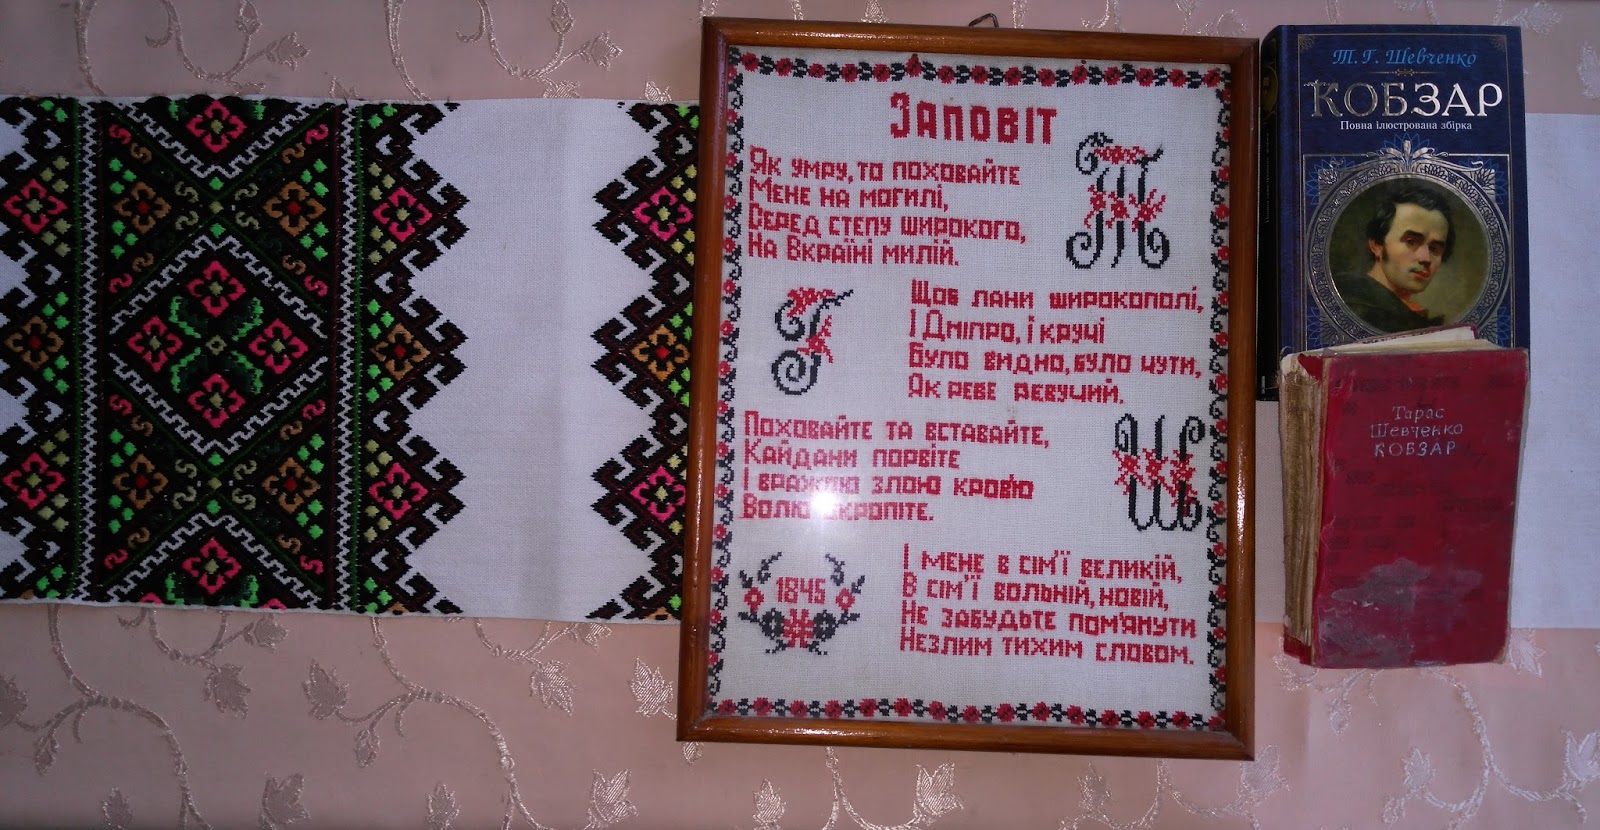 Заповіт
Як умру, то поховайте
Мене на могилі,
Серед степу широкого,
На Вкраїні милій.
Т
Щоб лани широкополі,
І Дніпро, і кручі
Було видно, було чути,
Як реве ревучий.
Г
Поховайте та вставайте,
Кайдани порвіте
І вражою злою кров'ю
Волю окропіте.
Ш
І мене в сім'ї великій,
В сім'ї вольній, новій,
Не забудьте пом'янути
Незлим тихим словом.
1845
Т. Г. Шевченко
КОБЗАР
Повна ілюстрована збірка
Тарас
Шевченко
КОБЗАР